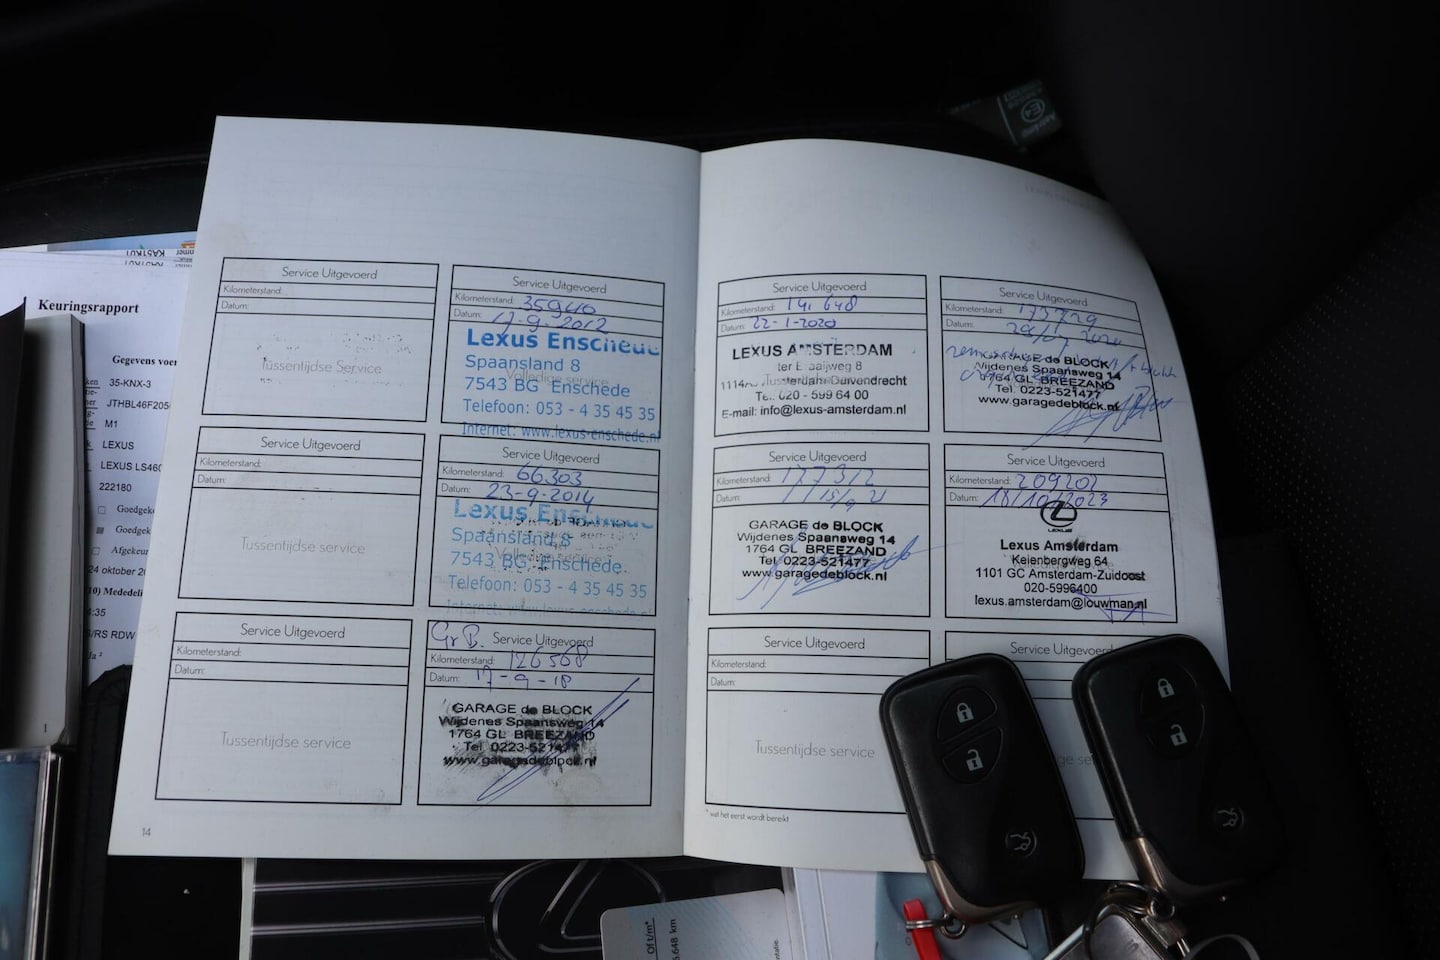 Keuringsrapport
Gegevens voer
35-KNX-3
JTHBL46F205
M1
LEXUS
LEXUS LS460
222180
Goedgek
Goedgek
Afgekeur
24 oktober 20
Mededeli
:35
/RS RDW
Ja ²
1
Service Uitgevoerd
Kilometerstand:
Datum:
Tussentijdse Service
Service Uitgevoerd
Kilometerstand: 35940
Datum: 17-9-2012
Lexus Enschede
Spaansland 8
Volledige service
7543 BG Enschede
Telefoon: 053 - 4 35 45 35
Internet: www.lexus-enschede.nl
Service Uitgevoerd
Kilometerstand:
Datum:
Tussentijdse service
Service Uitgevoerd
Kilometerstand: 66.303
Datum: 23-9-2014
Lexus Enschede
Spaansland 8
Volledige service
7543 BG Enschede
Telefoon: 053 - 4 35 45 35
Internet: www.lexus-enschede.nl
Service Uitgevoerd
Kilometerstand:
Datum:
Tussentijdse service
Gr B. Service Uitgevoerd
Kilometerstand: 126568
Datum: 17-9-18
GARAGE de BLOCK
Wijdenes Spaansweg 14
1764 GL BREEZAND
Tel. 0223-521477
www.garagedeblock.nl
14
Service Uitgevoerd
Kilometerstand: 141 648
Datum: 22-1-2020
LEXUS AMSTERDAM
ter Braaijweg 8
Amsterdam-Duivendrecht
Tel. 020 - 599 64 00
E-mail: info@lexus-amsterdam.nl
Service Uitgevoerd
Kilometerstand:
Datum:
GARAGE de BLOCK
Wijdenes Spaansweg 14
1764 GL BREEZAND
Tel. 0223-521477
www.garagedeblock.nl
Service Uitgevoerd
Kilometerstand: 177312
Datum: 15/9 21
GARAGE de BLOCK
Wijdenes Spaansweg 14
1764 GL BREEZAND
Tel. 0223-521477
www.garagedeblock.nl
Service Uitgevoerd
Kilometerstand: 209202
Datum: 18/10/2023
LEXUS
Lexus Amsterdam
Keienbergweg 64
1101 GC Amsterdam-Zuidoost
020-5996400
lexus.amsterdam@louwman.nl
Service Uitgevoerd
Kilometerstand:
Datum:
Tussentijdse service
Service Uitgevoerd
* wat het eerst wordt bereikt